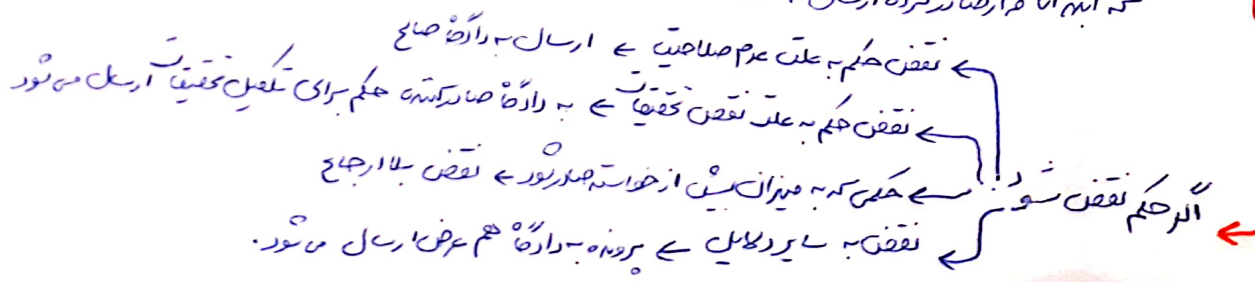 که این
نقض حکم به علت عدم صلاحیت ← ارسال به دادگاه صالح
نقض حکم به علت نقص تحقیقات ← به دادگاه صادرکننده حکم برای تکمیل تحقیقات ارسال می‌شود
اگر حکم نقض شود:
حکمی که به میزان بیش از خواسته صادر شود ← نقض بلا ارجاع
نقض به سایر دلایل ← پرونده به دادگاه هم عرض ارسال می‌شود.